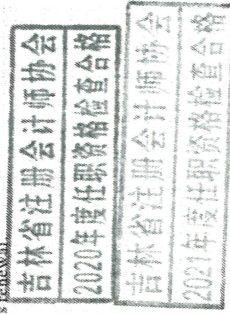 s renewal
吉林省注册会计师协会
2020年度任职资格检查合格
吉林省注册会计师协会
2021年度任职资格检查合格